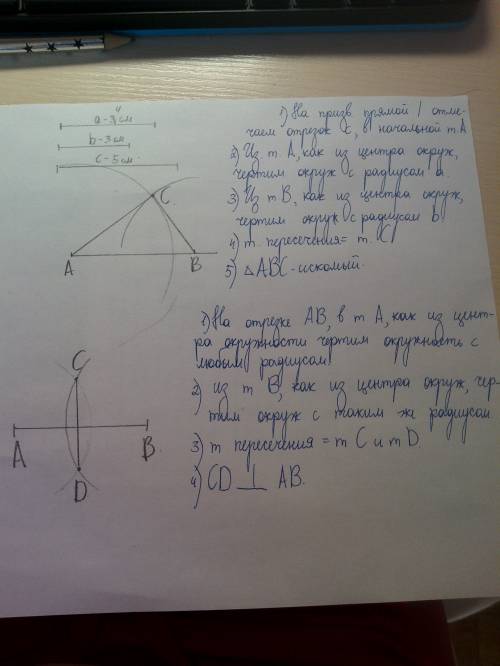 a - 4 см
b - 3 см
c - 5 см.
C
A
B
1) На призв. прямой l отме-
чаем отрезок C, в начальной т. A
2) Из т. A, как из центра окруж,
чертим окруж с радиусом a.
3) Из т B, как из центра окруж,
чертим окруж с радиусом b
4) т. пересечения = т. C
5) △ABC - искомый.
1) На отрезке AB, в т A, как из цент-
ра окружности чертим окружность с
любым радиусом
2) из т B, как из центра окруж, чер-
тим окруж с таким же радиусом.
3) т пересечения = т C и т D.
4) CD ⊥ AB.
C
A
B
D